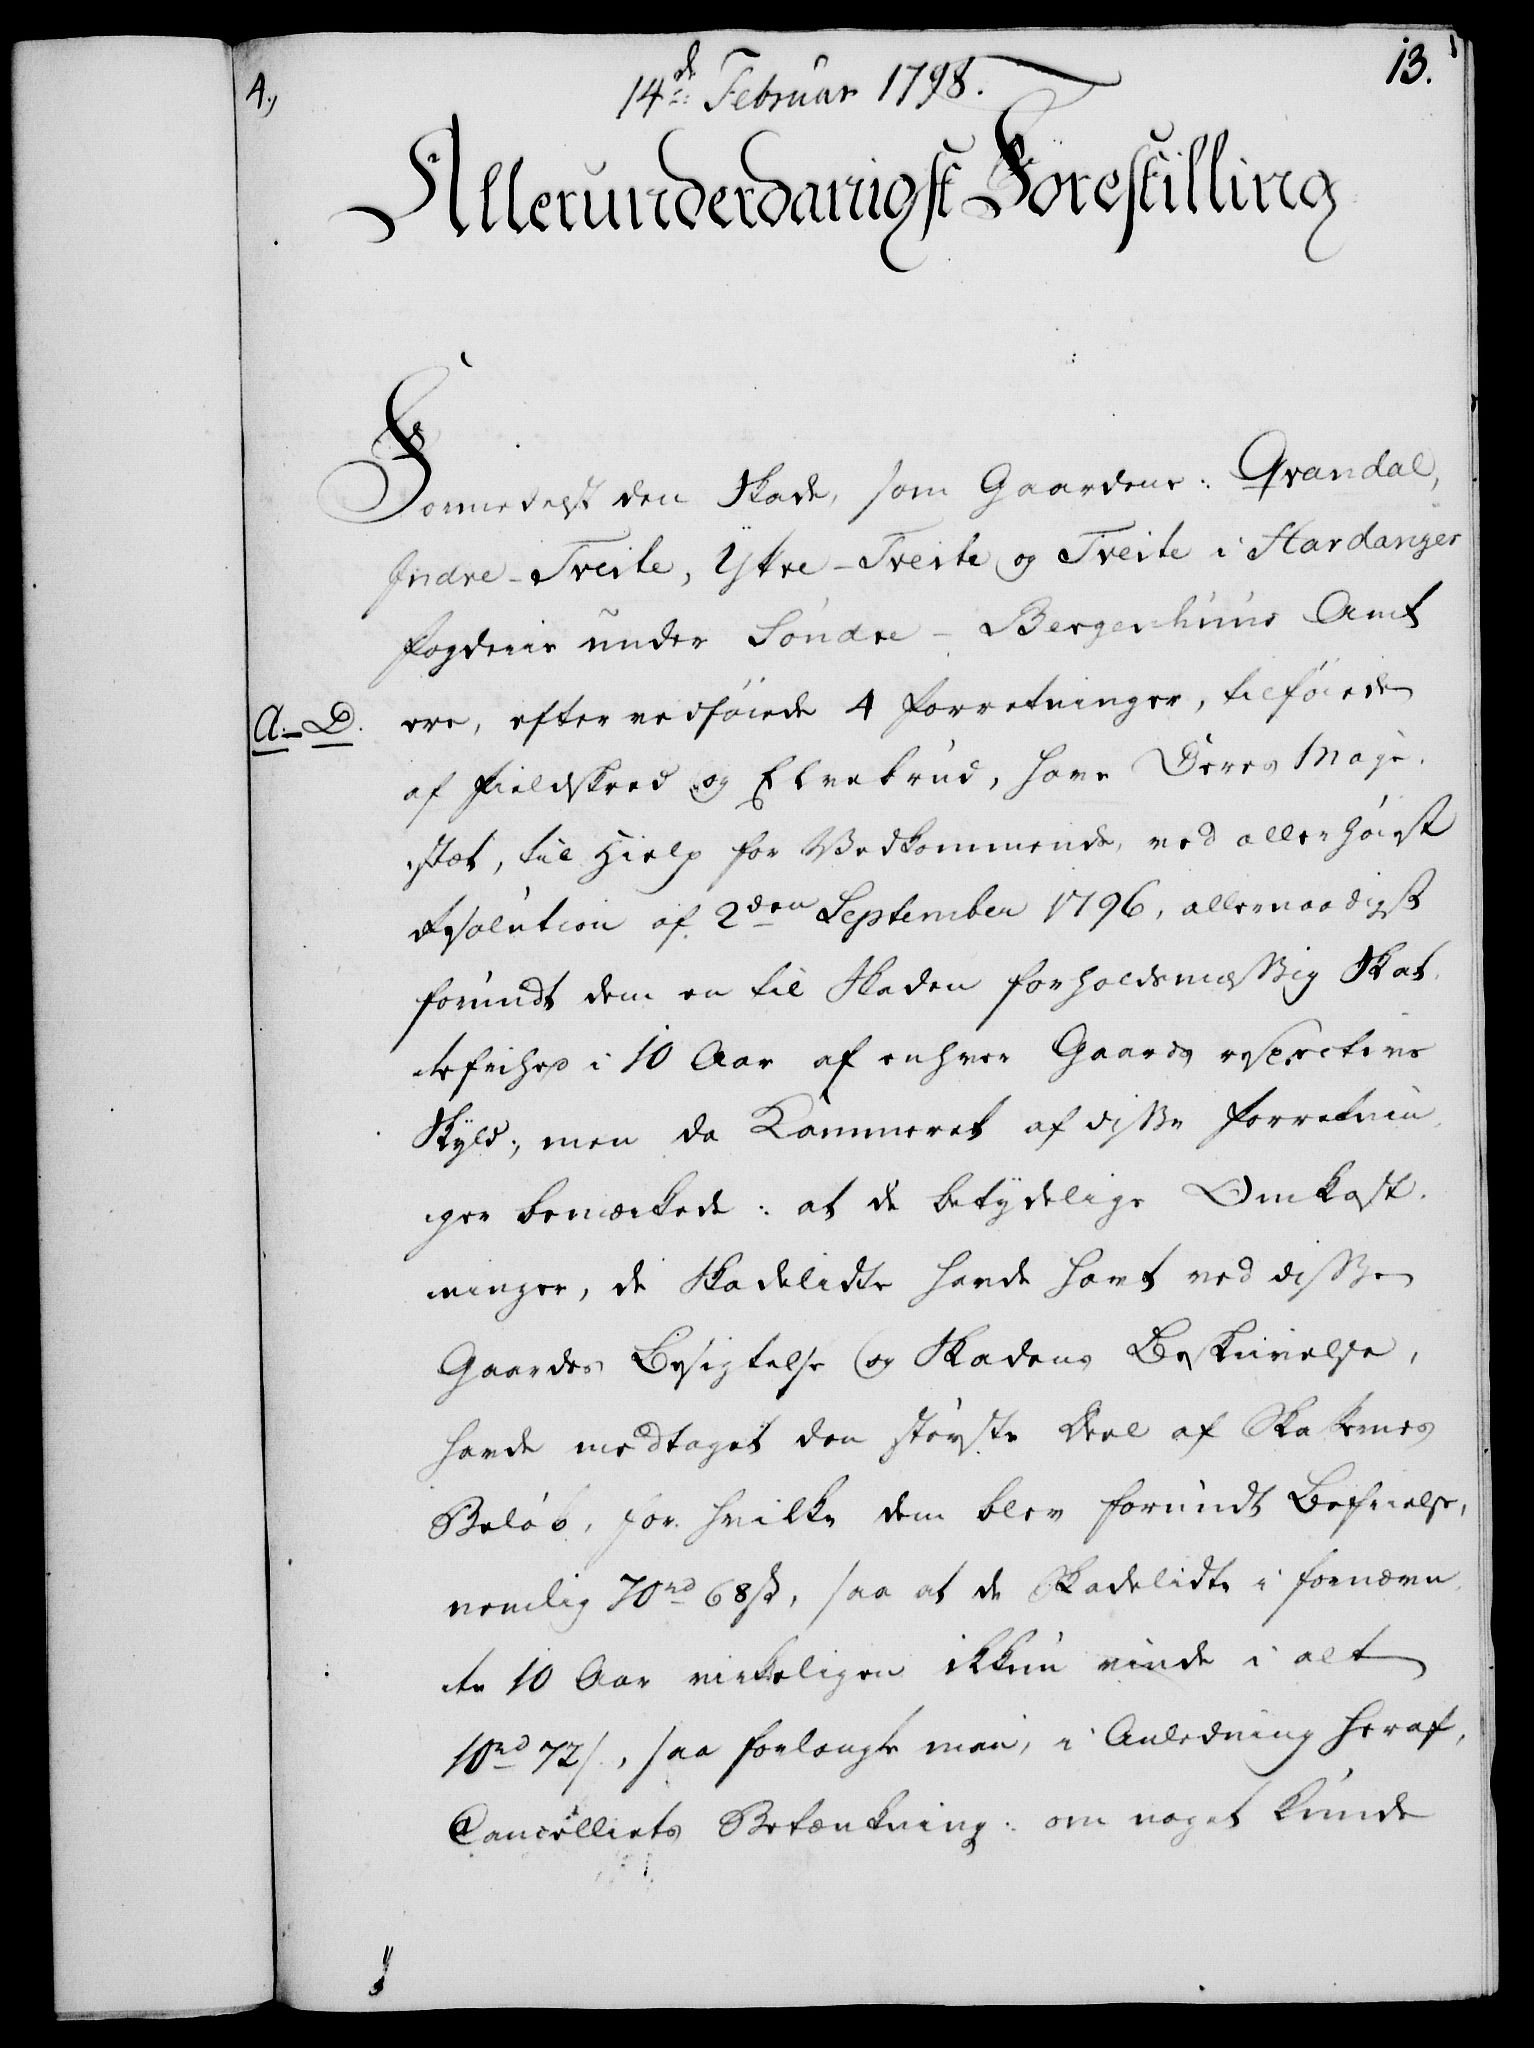 4.,
14de Februar 1798.
13.
Allerunderdanigst Forestilling
Formedelst den Skade, som Gaardene: Qvandal,
Indre-Tveite, Yttre-Tveite og Tveite i Hardanger
Fogderie under Söndre-Bergenhuus Amt
A.-D.
ere, efter vedföiede 4 Forretninger, tilföiede
af Fieldskred og Elvebrud, have Deres Maje-
stæt, til Hielp for Vedkommende, ved allerhöiest
Resolution af 2den September 1796, allernaadigst
forundt dem en til Skaden forholdsmæssig Skat-
tefrihed i 10 Aar af enhver Gaards respective
Skyld; men da Kammeret af disse Forretnin-
ger bemærkede: at de betydelige Omkost-
ninger, de Skadelidte havde havt ved disse
Gaardes Besigtelse og Skadens Beskrivelse,
havde medtaget den störste Deel af Skatternes
Belöb, for hvilke dem blev forundt Befrielse,
nemlig 70rd 68s, saa at de Skadelidte i fornævn-
te 10 Aar virkeligen ikkun vinde i alt
10rd 72s, saa forlangte man, i Anledning heraf,
Cancelliets Betænkning: om noget kunde